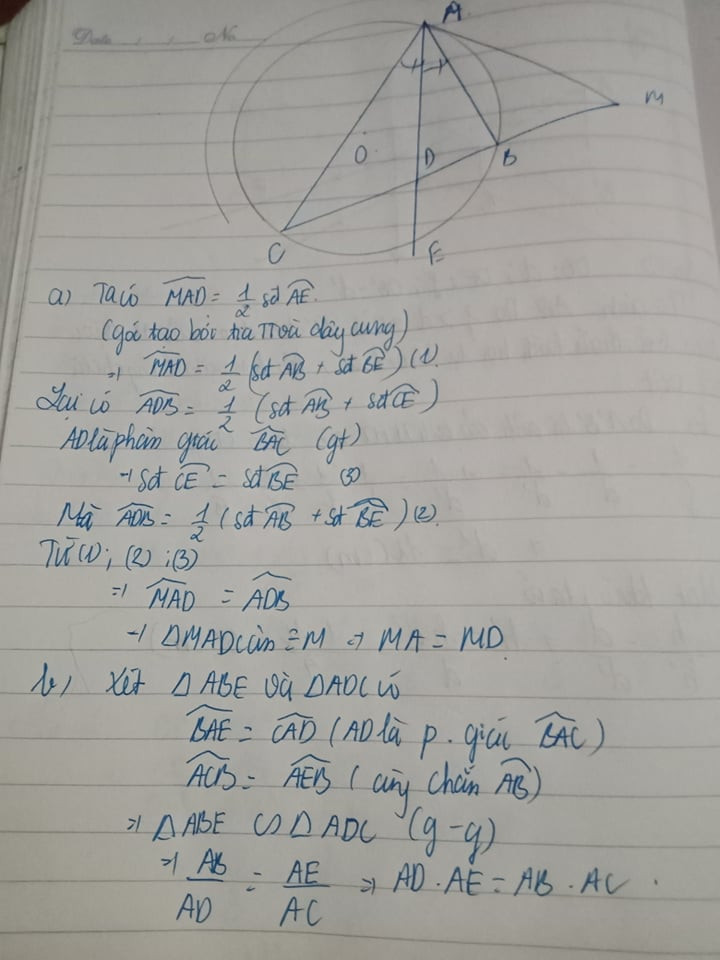 Date . , , No
A
M
O
D
B
C
E
a) Ta có MAD = 1/2 sđ AE.
(góc tạo bởi tia TT và dây cung)
=> MAD = 1/2 (sđ AB + sđ BE) (1)
Lại có ADB = 1/2 (sđ AB + sđ CE)
AD là phân giác BAC (gt)
→ sđ CE = sđ BE (3)
Mà ADB = 1/2 (sđ AB + sđ BE) (2).
Từ (1); (2); (3)
=> MAD = ADB
→ ΔMAD cân ≡ M => MA = MD
b) Xét ΔABE và ΔADC có
BAE = CAD (AD là p. giác BAC)
ACB = AEB (cùng chắn AB)
=> ΔABE ∽ ΔADC (g-g)
=> AB/AD = AE/AC => AD . AE = AB . AC .